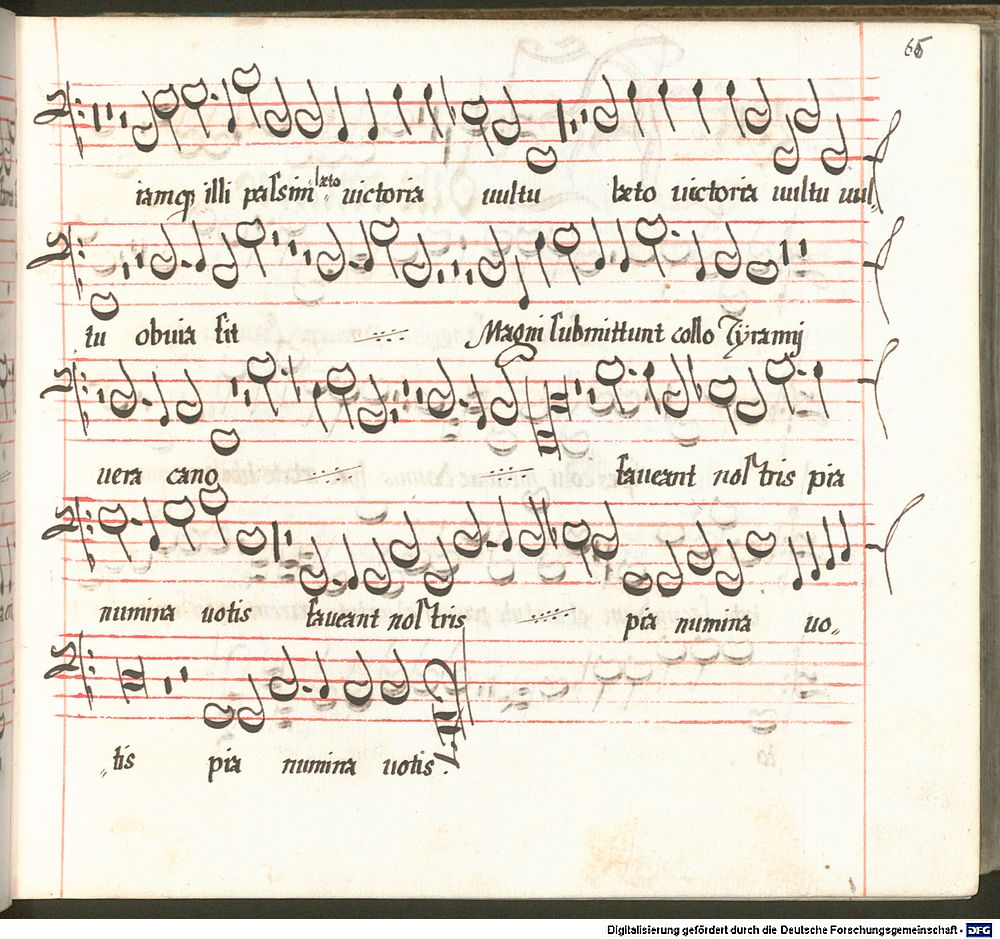 65
iamq; illi passim læto victoria uultu læto uictoria uultu uul„
tu obuia sit Magni submittunt collo Tyranni
uera cano faueant nostris pia
numina uotis faueant nostris pia numina uo„
„tis pia numina uotis.
Digitalisierung gefördert durch die Deutsche Forschungsgemeinschaft - DFG